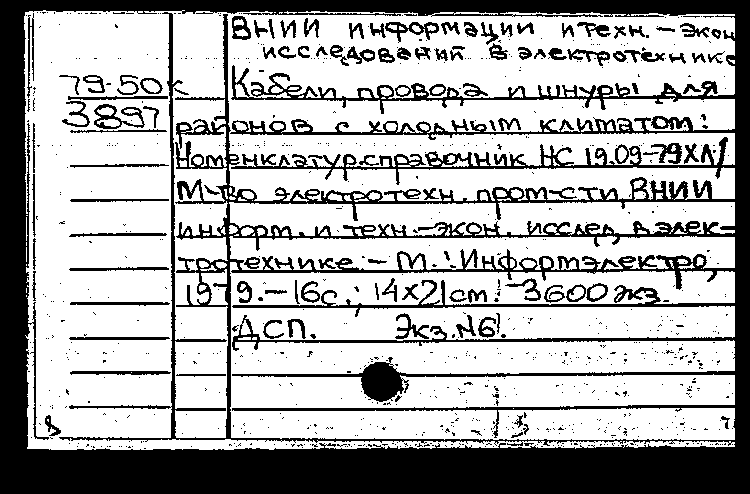 ВНИИ информации и техн. – экон
исследований в электротехнике
79-50к Кабели, провода и шнуры для
3897 районов с холодным климатом:
Номенклатур. справочник НС 19.09-79ХЛ/
М-во электротехн. пром-сти, ВНИИ
информ. и техн.-экон. исслед. в элек-
тротехнике. – М.: Информэлектро,
1979. – 16с.; 14х21cm. – 3600 экз.
ДСП. Экз. №6.